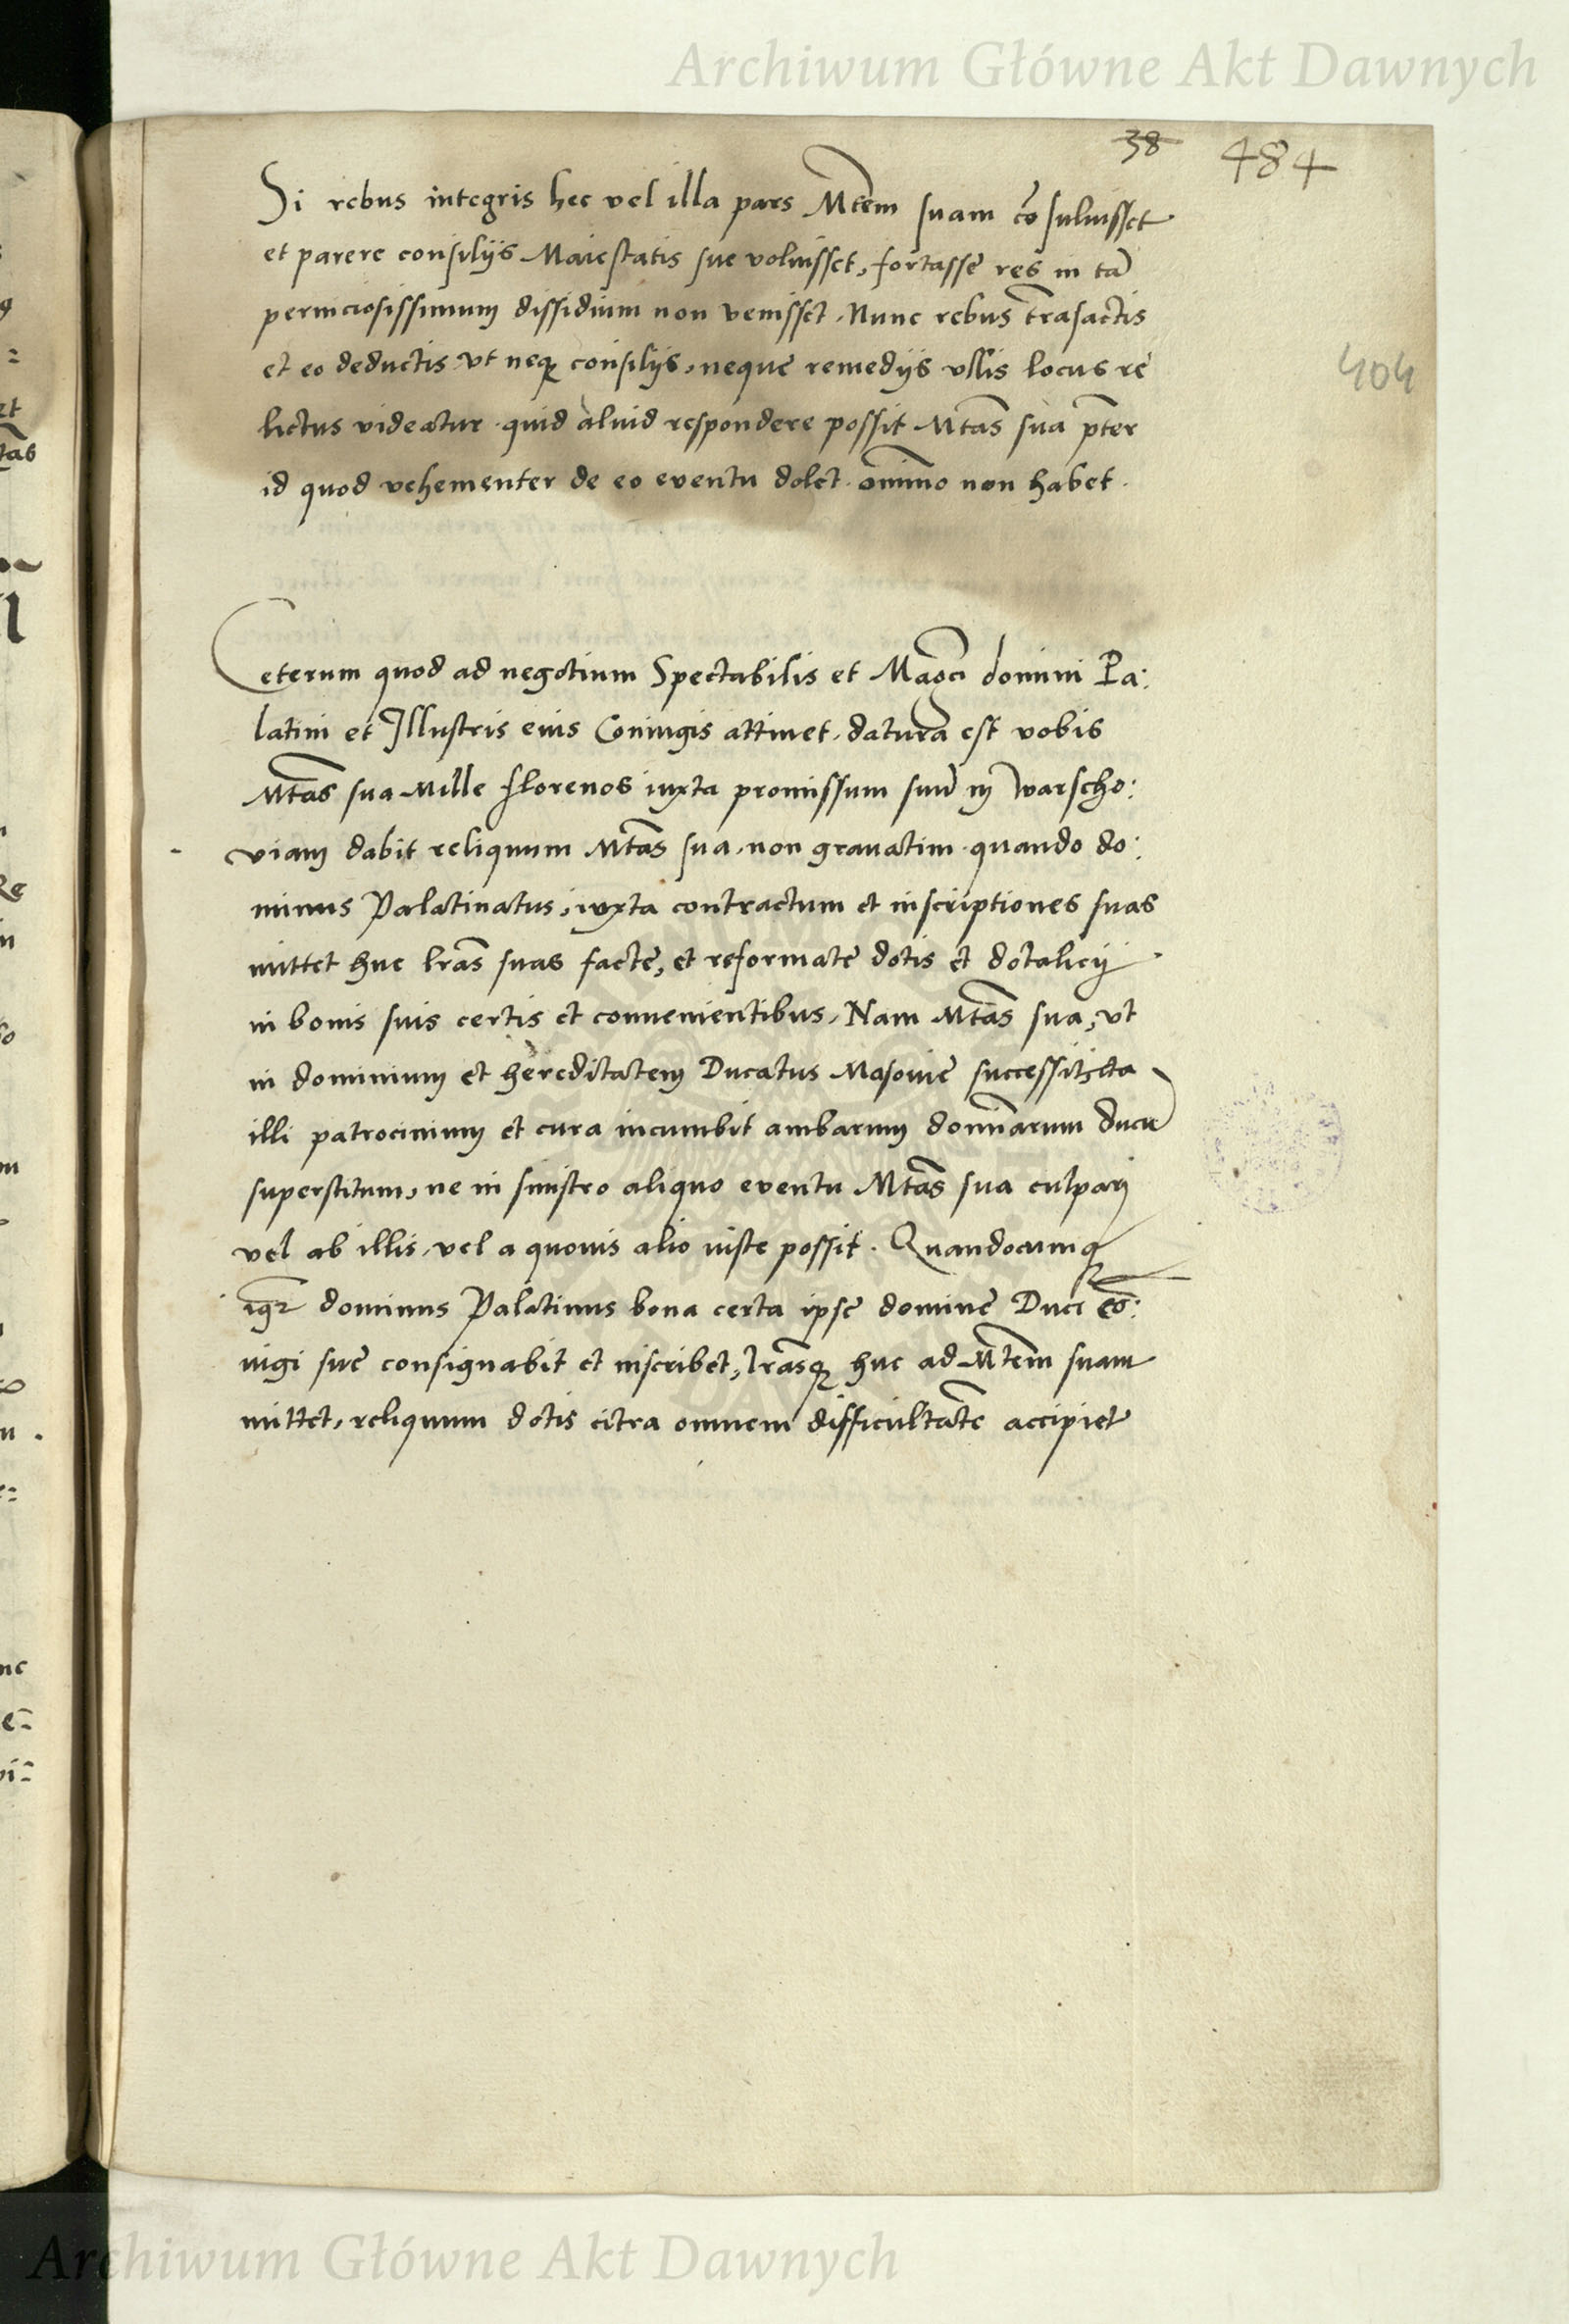 Archiwum Główne Akt Dawnych
38 484
Si rebus integris hec vel illa pars Mtem suam cōsuluisset
et parere consilijs Maiestatis sue voluisset, fortasse res in tā
perniciosissimum dissidium non venisset. Nunc rebus trāsactis
et eo deductis vt neq; consilijs, neque remedijs vllis locus re
404
lictus videatur. quid aliud respondere possit Mtas sua pter
id quod vehementer de eo eventu dolet. omnino non habet.
Ceterum quod ad negotium Spectabilis et Magci domini Pa:
latini et Illustris eius Coniugis attinet. datura est vobis
Mtas sua Mille florenos iuxta promissum suū in Warscho:
viam dabit reliquum Mtas sua, non gravatim. quando do:
minus Palatinatus, iuxta contractum et inscriptiones suas
mittet huc lras suas facte, et reformate dotis et dotalicij
in bonis suis certis et convenientibus, Nam Mtas sua, vt
in dominium et hereditatem Ducatus Masovie successit, ita
illi patrocinium et cura incumbit ambarum domīarum ducū
superstitum, ne in sinistro aliquo eventu Mtas sua culpari
vel ab illis, vel a quovis alio iuste possit. Quandocumq;
igr dominus Palatinus bona certa ipse domine Duci cō:
iugi sue consignabit et inscribet, lrasq; huc ad Mtem suam
mittet, reliquum dotis citra omnem difficultatē accipiet
Archiwum Główne Akt Dawnych